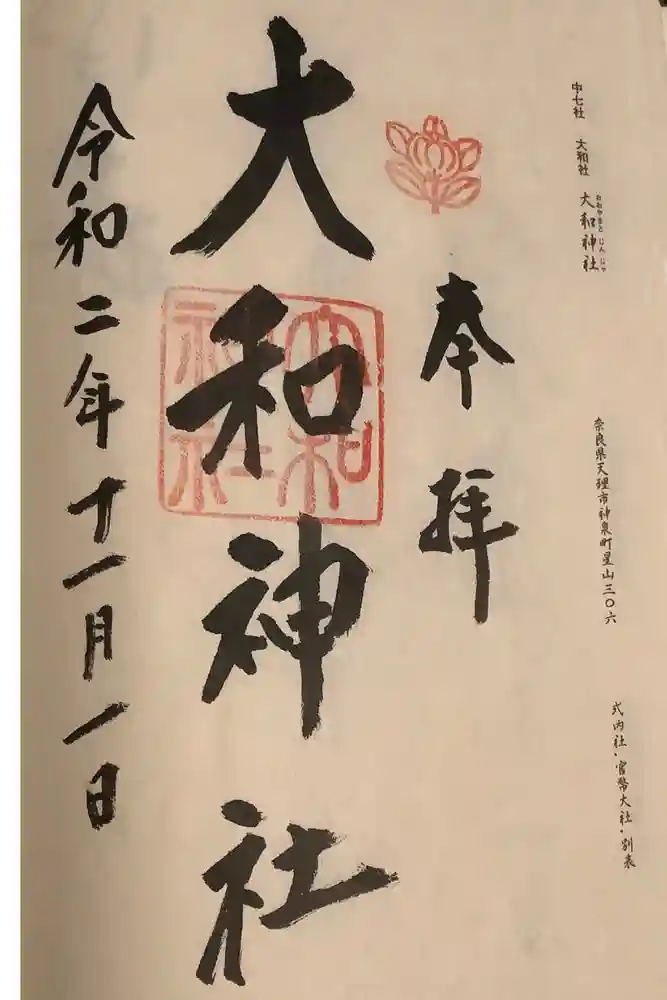 中七社 大和社 大和神社
おおやまと じんじゃ
奈良県天理市神泉町星山三〇六
式内社・官幣大社・別表
奉拝
大和神社
大和
神社
令和二年十一月一日